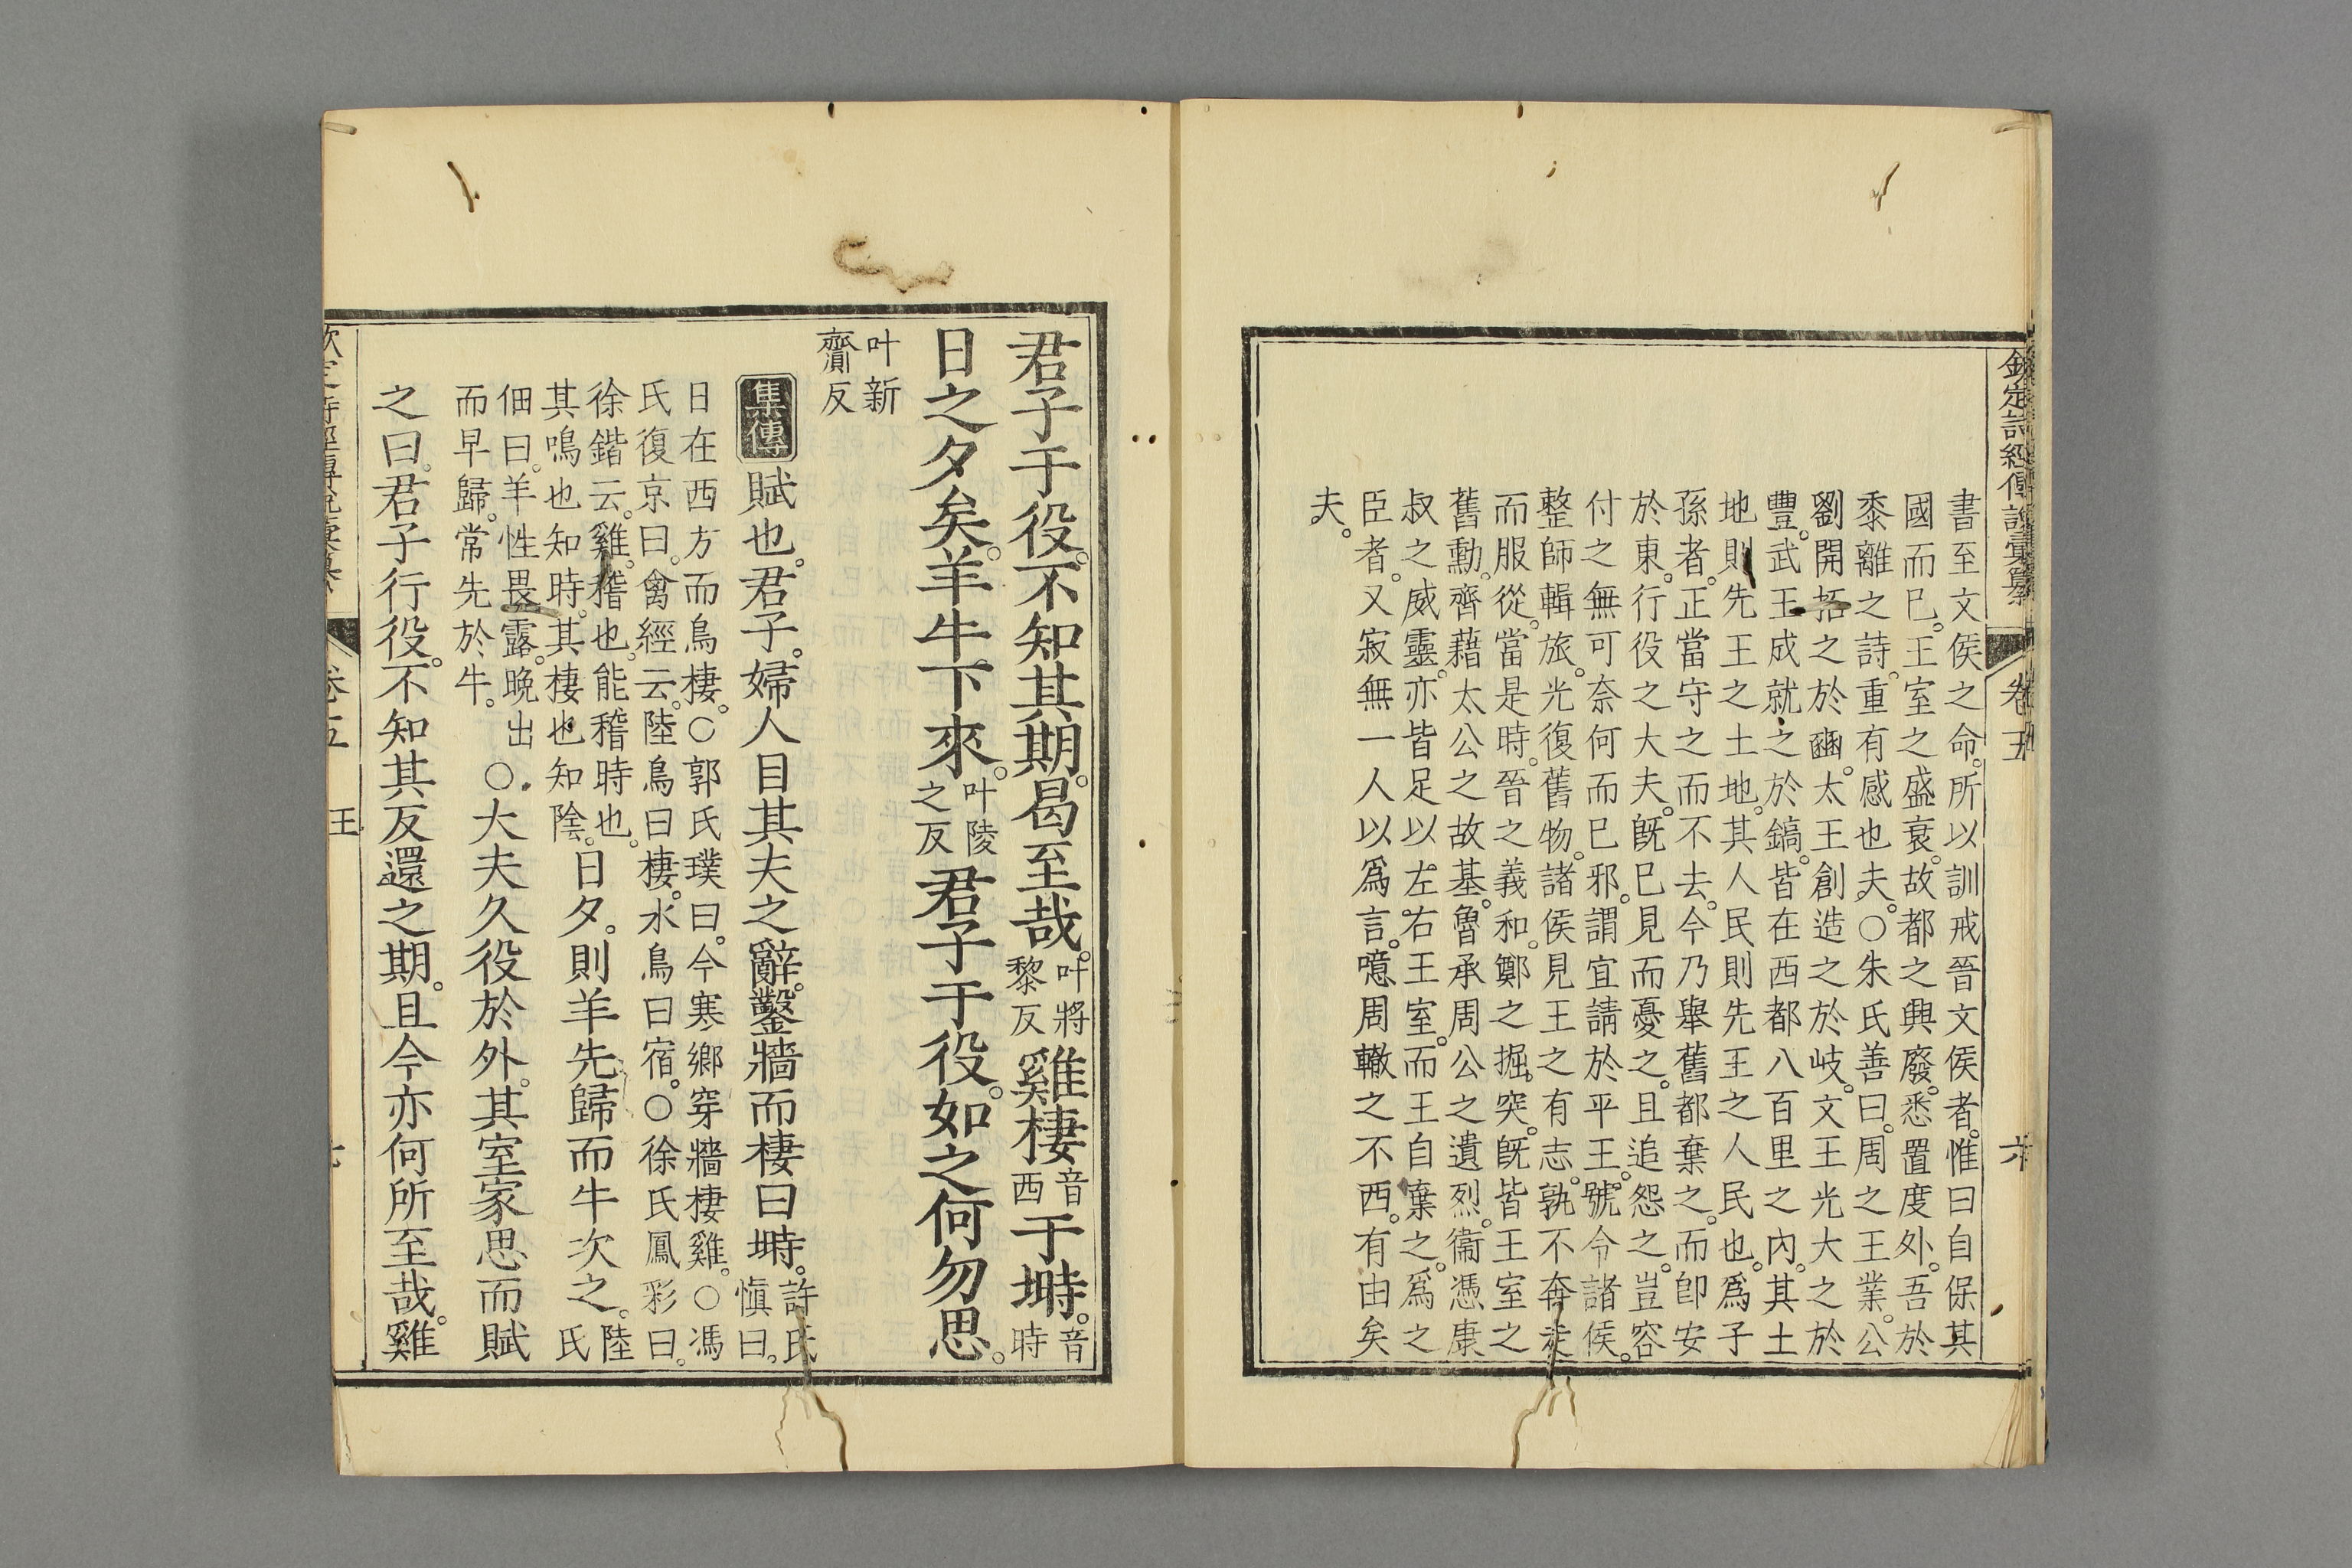 欽定詩經傳說彙纂 卷五 六
書至文侯之命。所以訓戒晉文侯者。惟曰自保其
國而已。王室之盛衰。故都之興廢。悉置度外。吾於
黍離之詩。重有感也夫。○朱氏善曰。周之王業。公
劉開拓之於豳。太王創造之於岐。文王光大之於
豐。武王成就之於鎬。皆在西都八百里之內。其土
地則先王之土地。其人民則先王之人民也。爲子
孫者。正當守之而不去。今乃舉舊都棄之。而卽安
於東。行役之大夫。旣已見而憂之。且追怨之。豈容
付之無可奈何而已邪。謂宜請於平王。號令諸侯。
整師輯旅。光復舊物。諸侯見王之有志。孰不奔走
而服從。當是時。晉之義和。鄭之掘突。旣皆王室之
舊勳。齊藉太公之故基。魯承周公之遺烈。衞憑康
叔之威靈。亦皆足以左右王室。而王自棄之。爲之
臣者。又寂無一人以爲言。噫。周轍之不西。有由矣
夫。
君子于役。不知其期。曷至哉。叶將黎反雞棲音西于塒。音時
日之夕矣。羊牛下來。叶陵之反君子于役。如之何勿思。
叶新齎反
集傳 賦也。君子。婦人目其夫之辭。鑿牆而棲曰塒。許氏愼曰。
日在西方而鳥棲。○郭氏璞曰。今寒鄉穿牆棲雞。○馮
氏復京曰。禽經云。陸鳥曰棲。水鳥曰宿。○徐氏鳳彩曰。
徐鍇云。雞。稽也。能稽時也。
其鳴也知時。其棲也知陰。日夕。則羊先歸而牛次之。陸氏
佃曰。羊性畏露。晚出
而早歸。常先於牛。○大夫久役於外。其室家思而賦
之曰。君子行役。不知其反還之期。且今亦何所至哉。雞
卷五 王